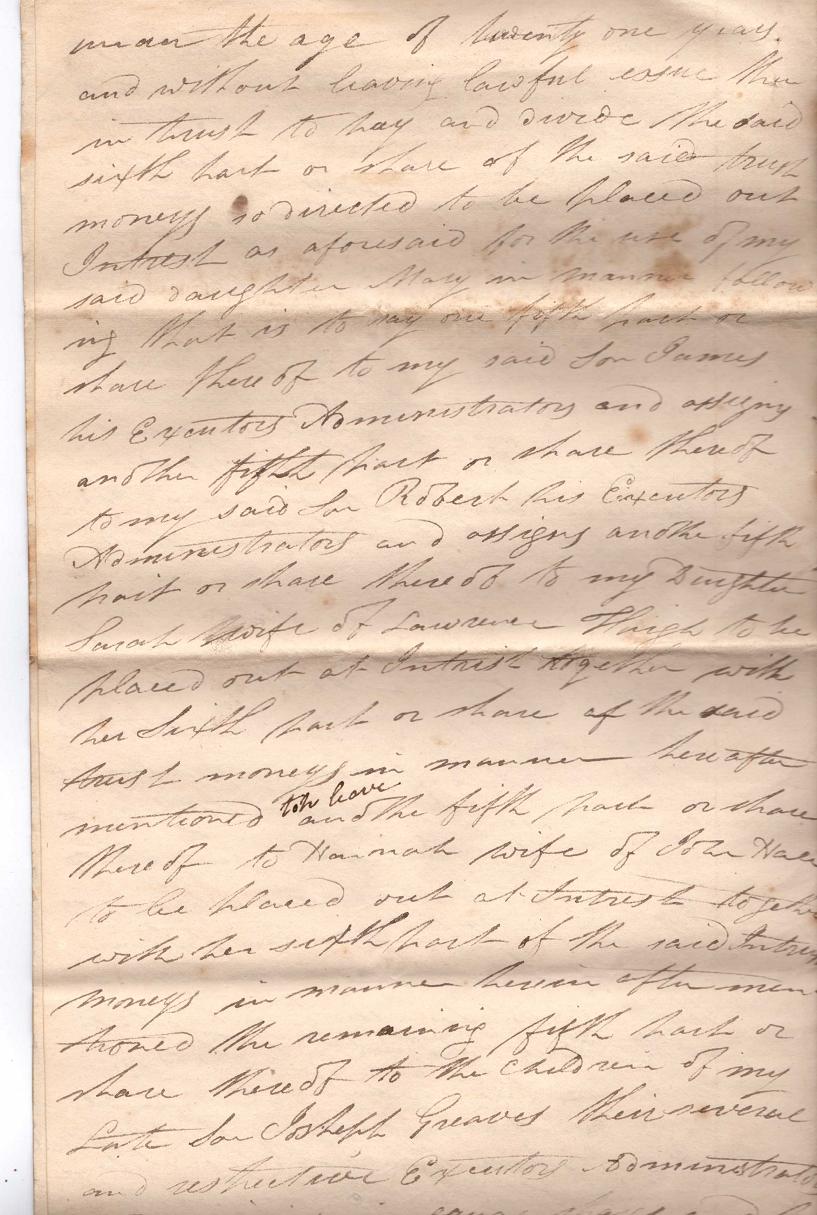 under the age of twenty one years.
and without leaving lawful essue then
in trust to pay and divide the said
sixth part or share of the said trust
moneys so directed to be placed out
Intrest as aforesaid for the use of my
said daughter Mary in manner follow
ing that is to say one fifth part or
share thereof to my said Son James
his Executors Administrators and assigns
another fifth part or share thereof
to my said Son Robert his Executors
Administrators and assigns anothe fifth
part or share thereof to my Daughter
Sarah wife of Lawrence to be
placed out at Intrist together with
her Sixth part or share of the said
trust moneys in manner hereafter
mentioned anothe fifth part or share
thereof to Hannah wife of John
to be placed out at Intrest together
with her sixth part of the said Intrest
moneys in manner herein after men
tioned the remaining fifth part or
share thereof to the Children of my
Late Son Joseph Greaves their several
and respective Executors Administrators